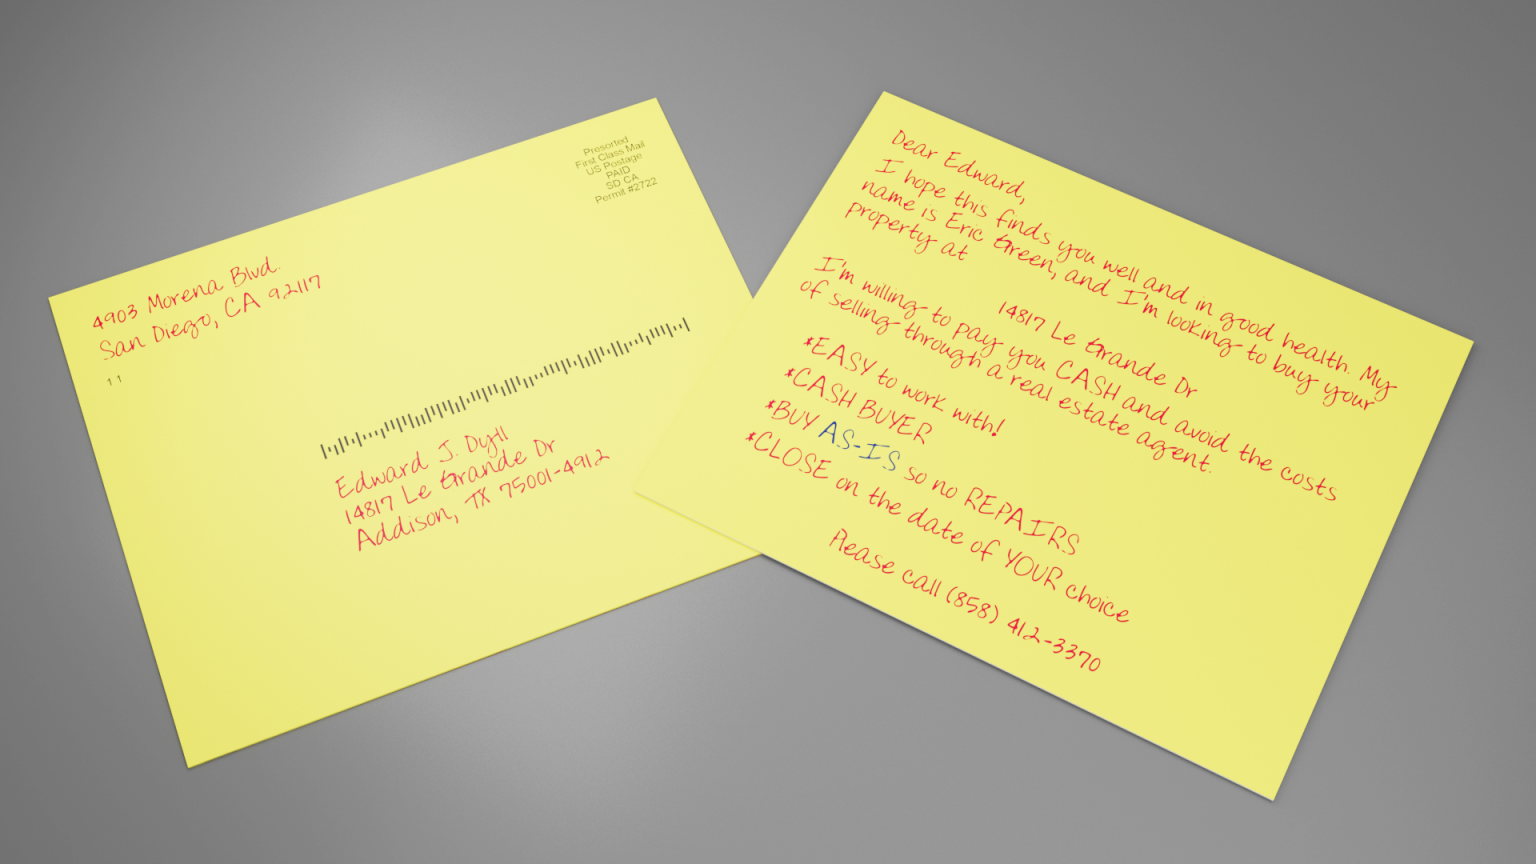 Presorted
First Class Mail
US Postage
PAID
SD CA
Permit #2722
4903 Morena Blvd.
San Diego, CA 92117
11
Edward J. Dyll
14817 Le Grande Dr
Addison, TX 75001-4912
Dear Edward,
I hope this finds you well and in good health. My
name is Eric Green, and I'm looking to buy your
property at
14817 Le Grande Dr
I'm willing to pay you CASH and avoid the costs
of selling through a real estate agent.
*EASY to work with!
*CASH BUYER
*BUY AS-IS so no REPAIRS
*CLOSE on the date of YOUR choice
Please call (858) 412-3370